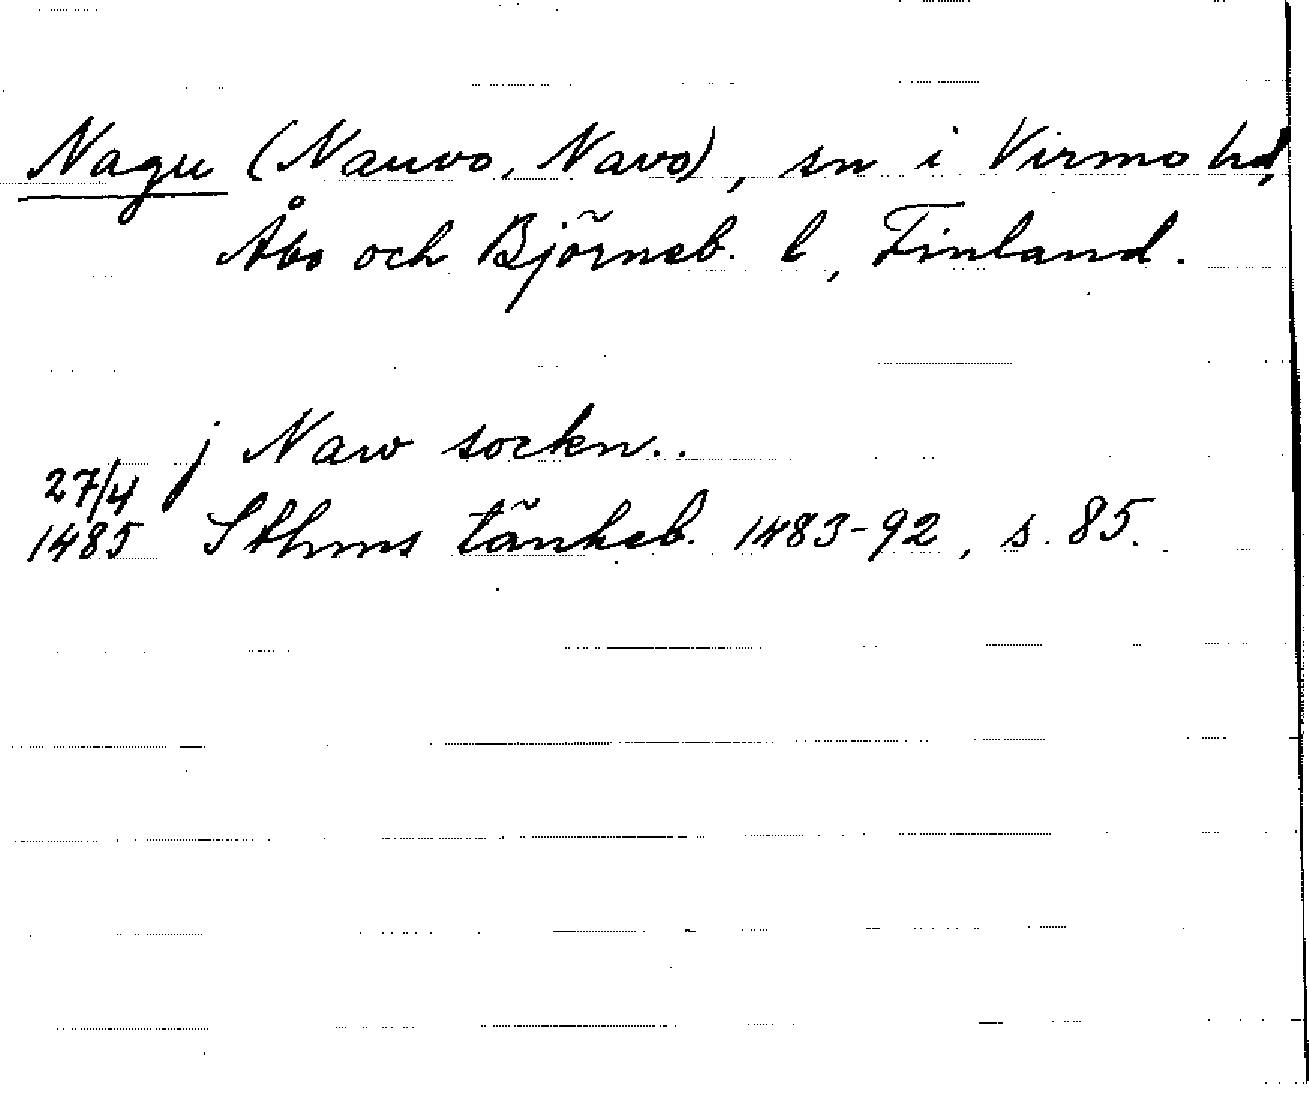 Nagu (Nauvo, Navo), sn i Virmo hd,
Åbo och Björneb. l, Finland.
j Naw sockn..
27/4
1485 Sthms tänkeb. 1483-92, s. 85.